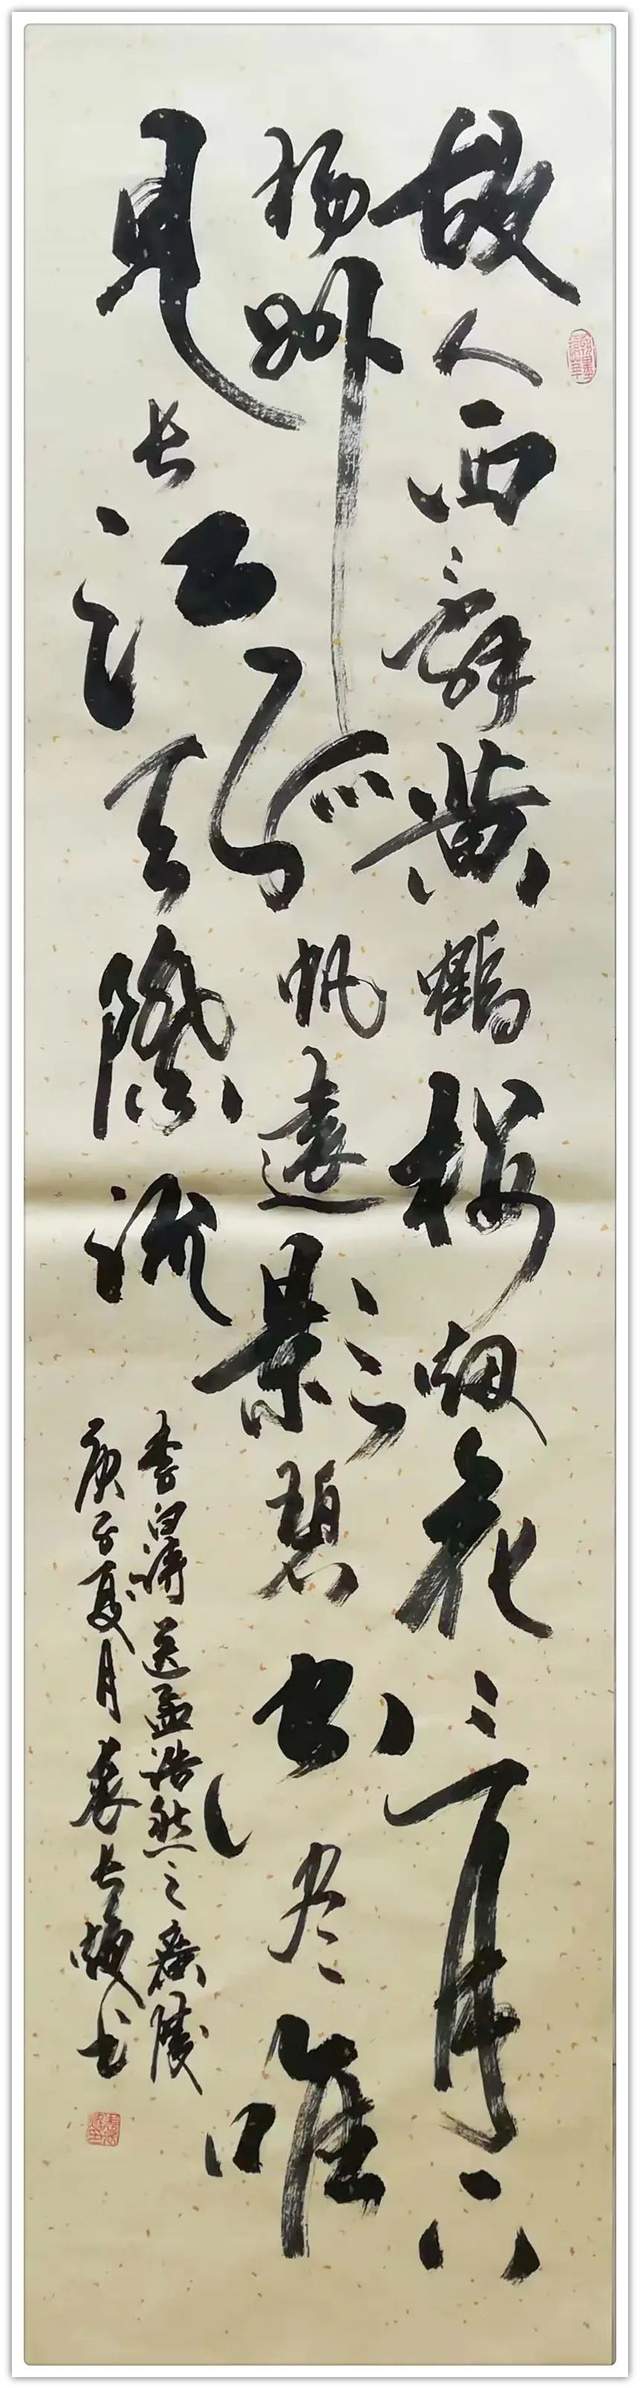 故人西辞黄鶴楼烟花三月下
扬州孤帆遠影碧山尽唯
見长江天際流
李白詩送孟浩然之廣陵
庚子夏月袁长书